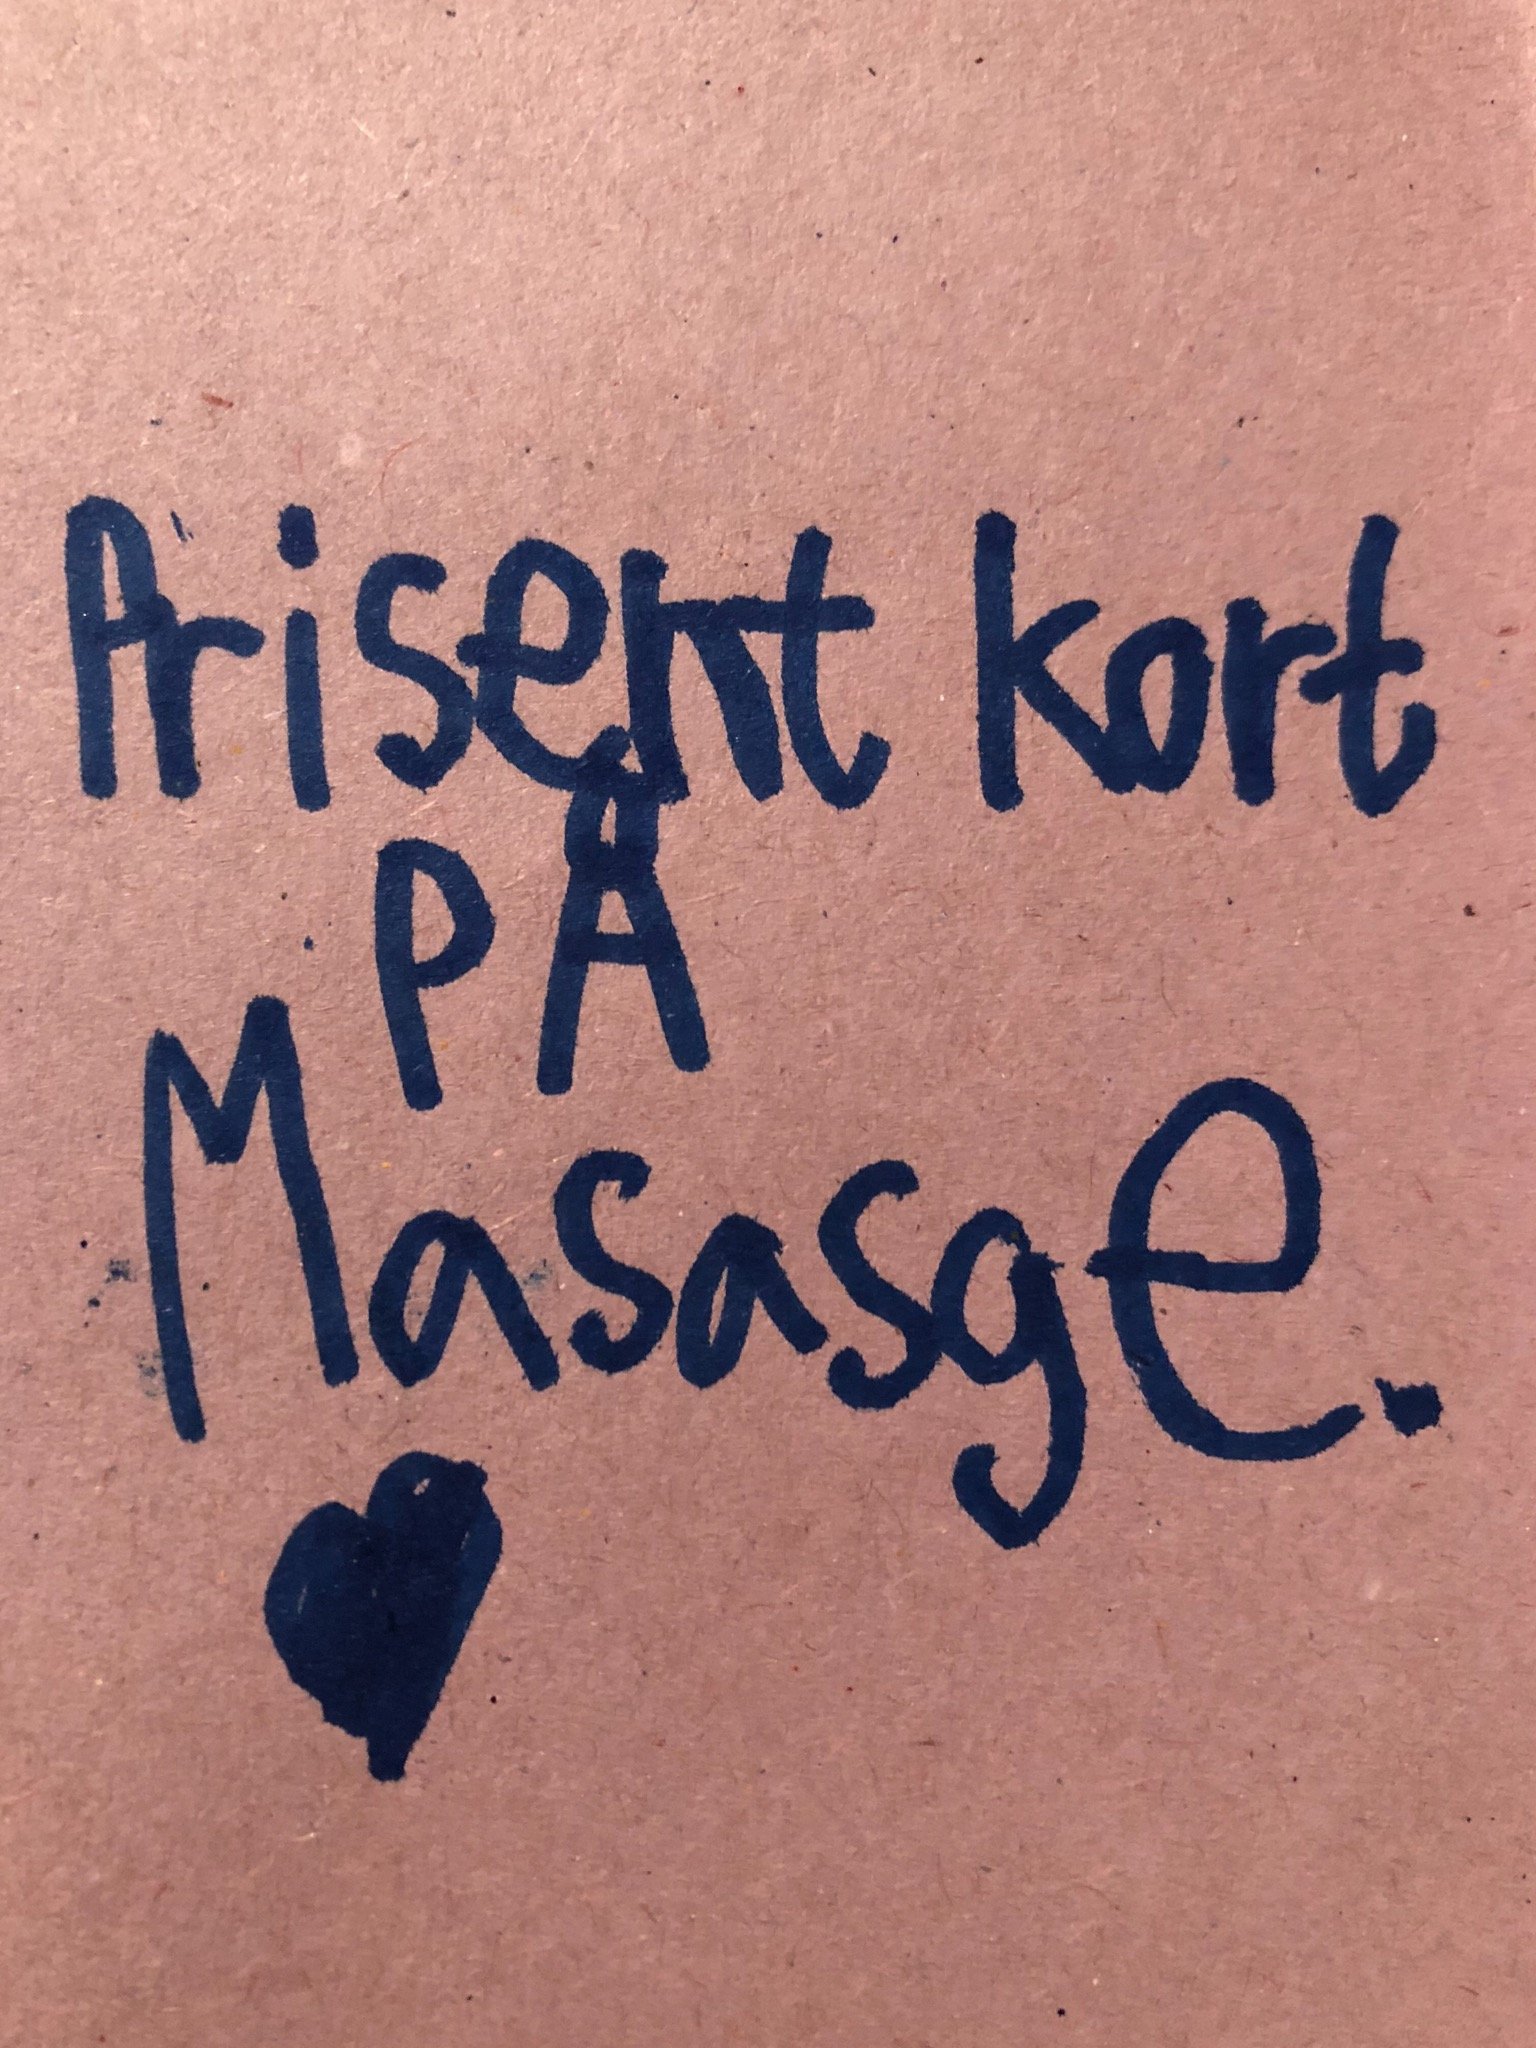 Prisent kort
PÅ
Masasge.